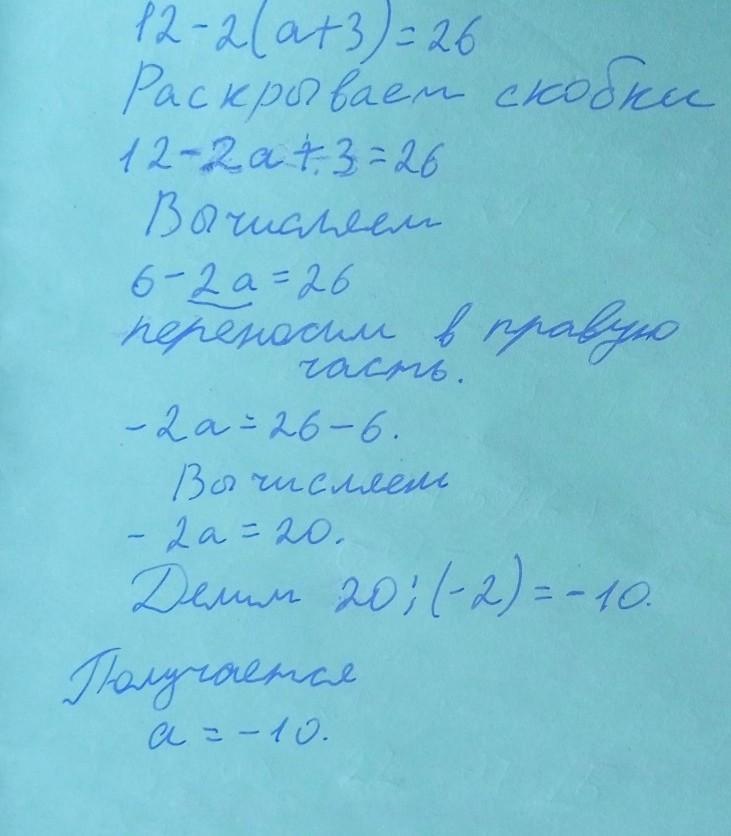 12-2(a+3)=26
Раскрываем скобки
12-2a+3=26
Вычисляем
6-2a=26
переносим в правую
часть.
-2a=26-6.
Вычисляем
-2a=20.
Делим 20:(-2)=-10.
Получается
a=-10.